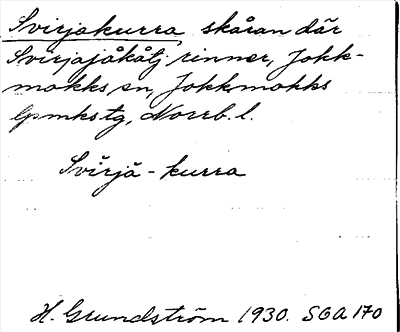 Svirjakurra skåran där
Svirjajåkåtj rinner, Jokk-
mokks sn, Jokkmokks
lpmkstg, Norrb. l.
Svīrjā - kurra
H. Grundström 1930. SGA 170